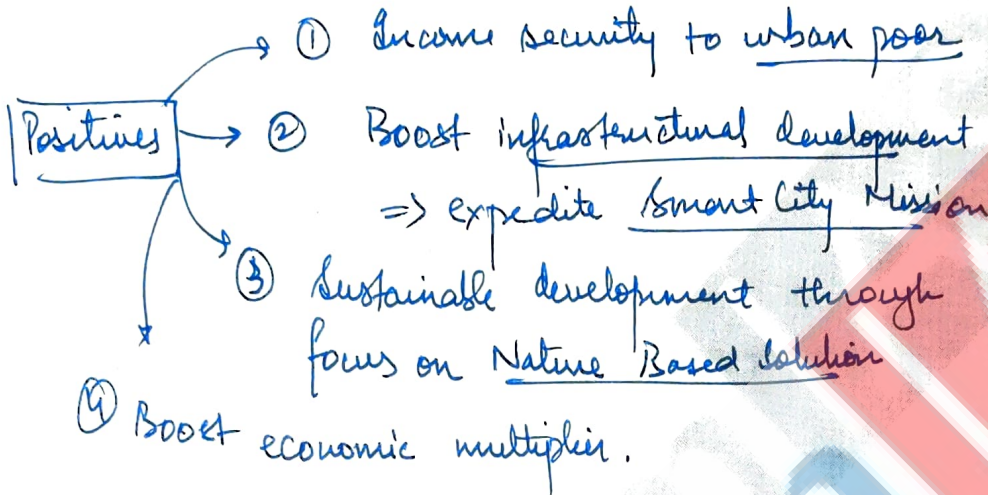 ① Income security to urban poor
Positives
② Boost infrastructural development
=> expedite Smart City Mission
③ Sustainable development through
focus on Nature Based Solution
④ Boost economic multiplier.